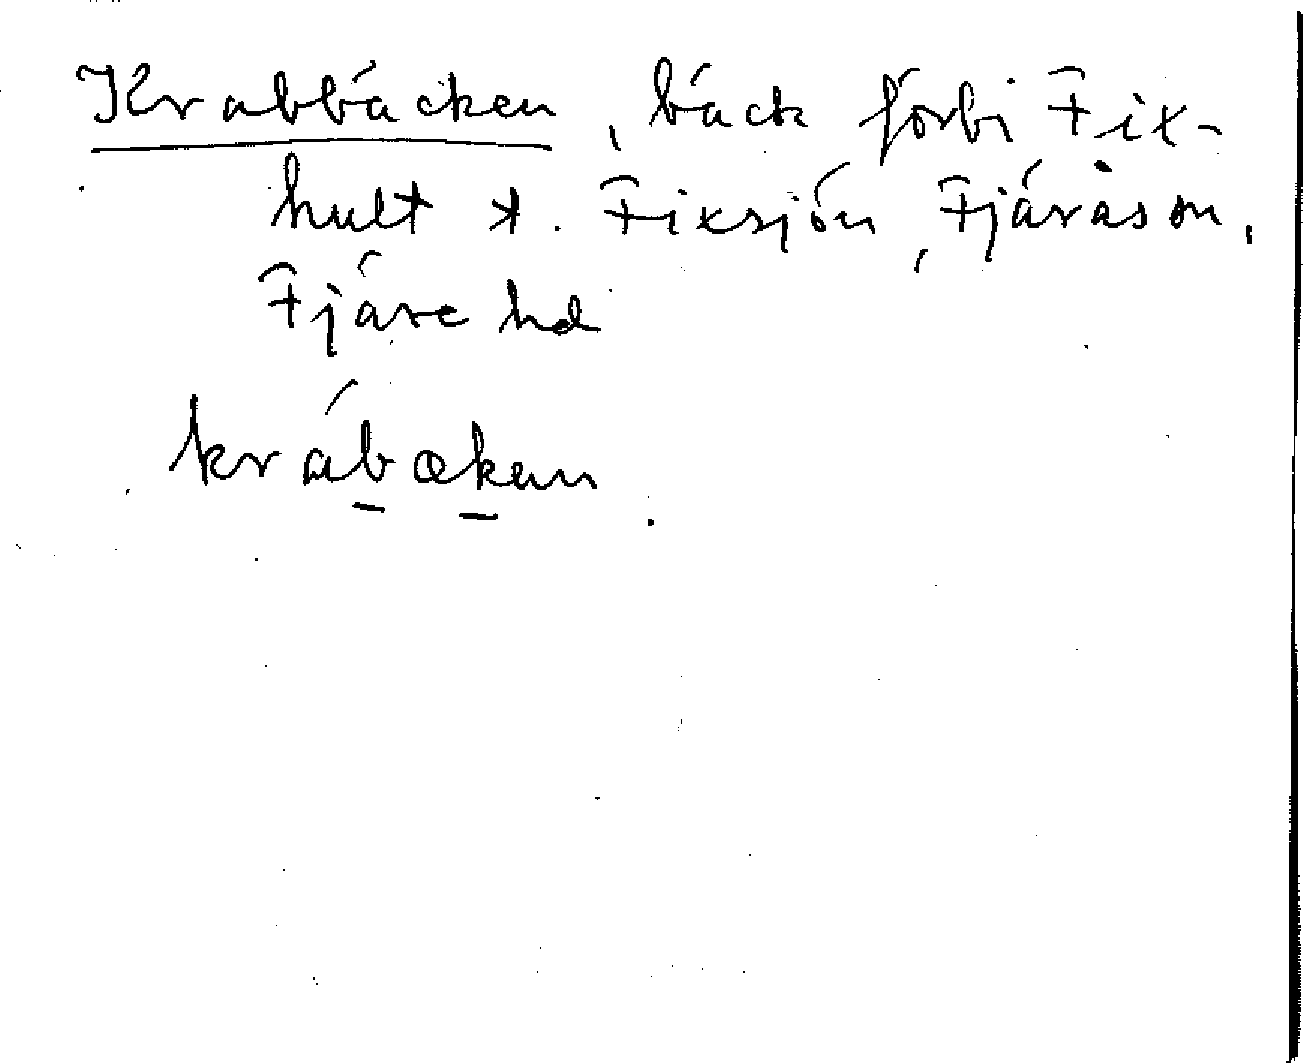 Krabbäcken, bäck förbi Fix-
hult t. Fixsjön, Fjärås sn,
Fjäre hd
krábækan